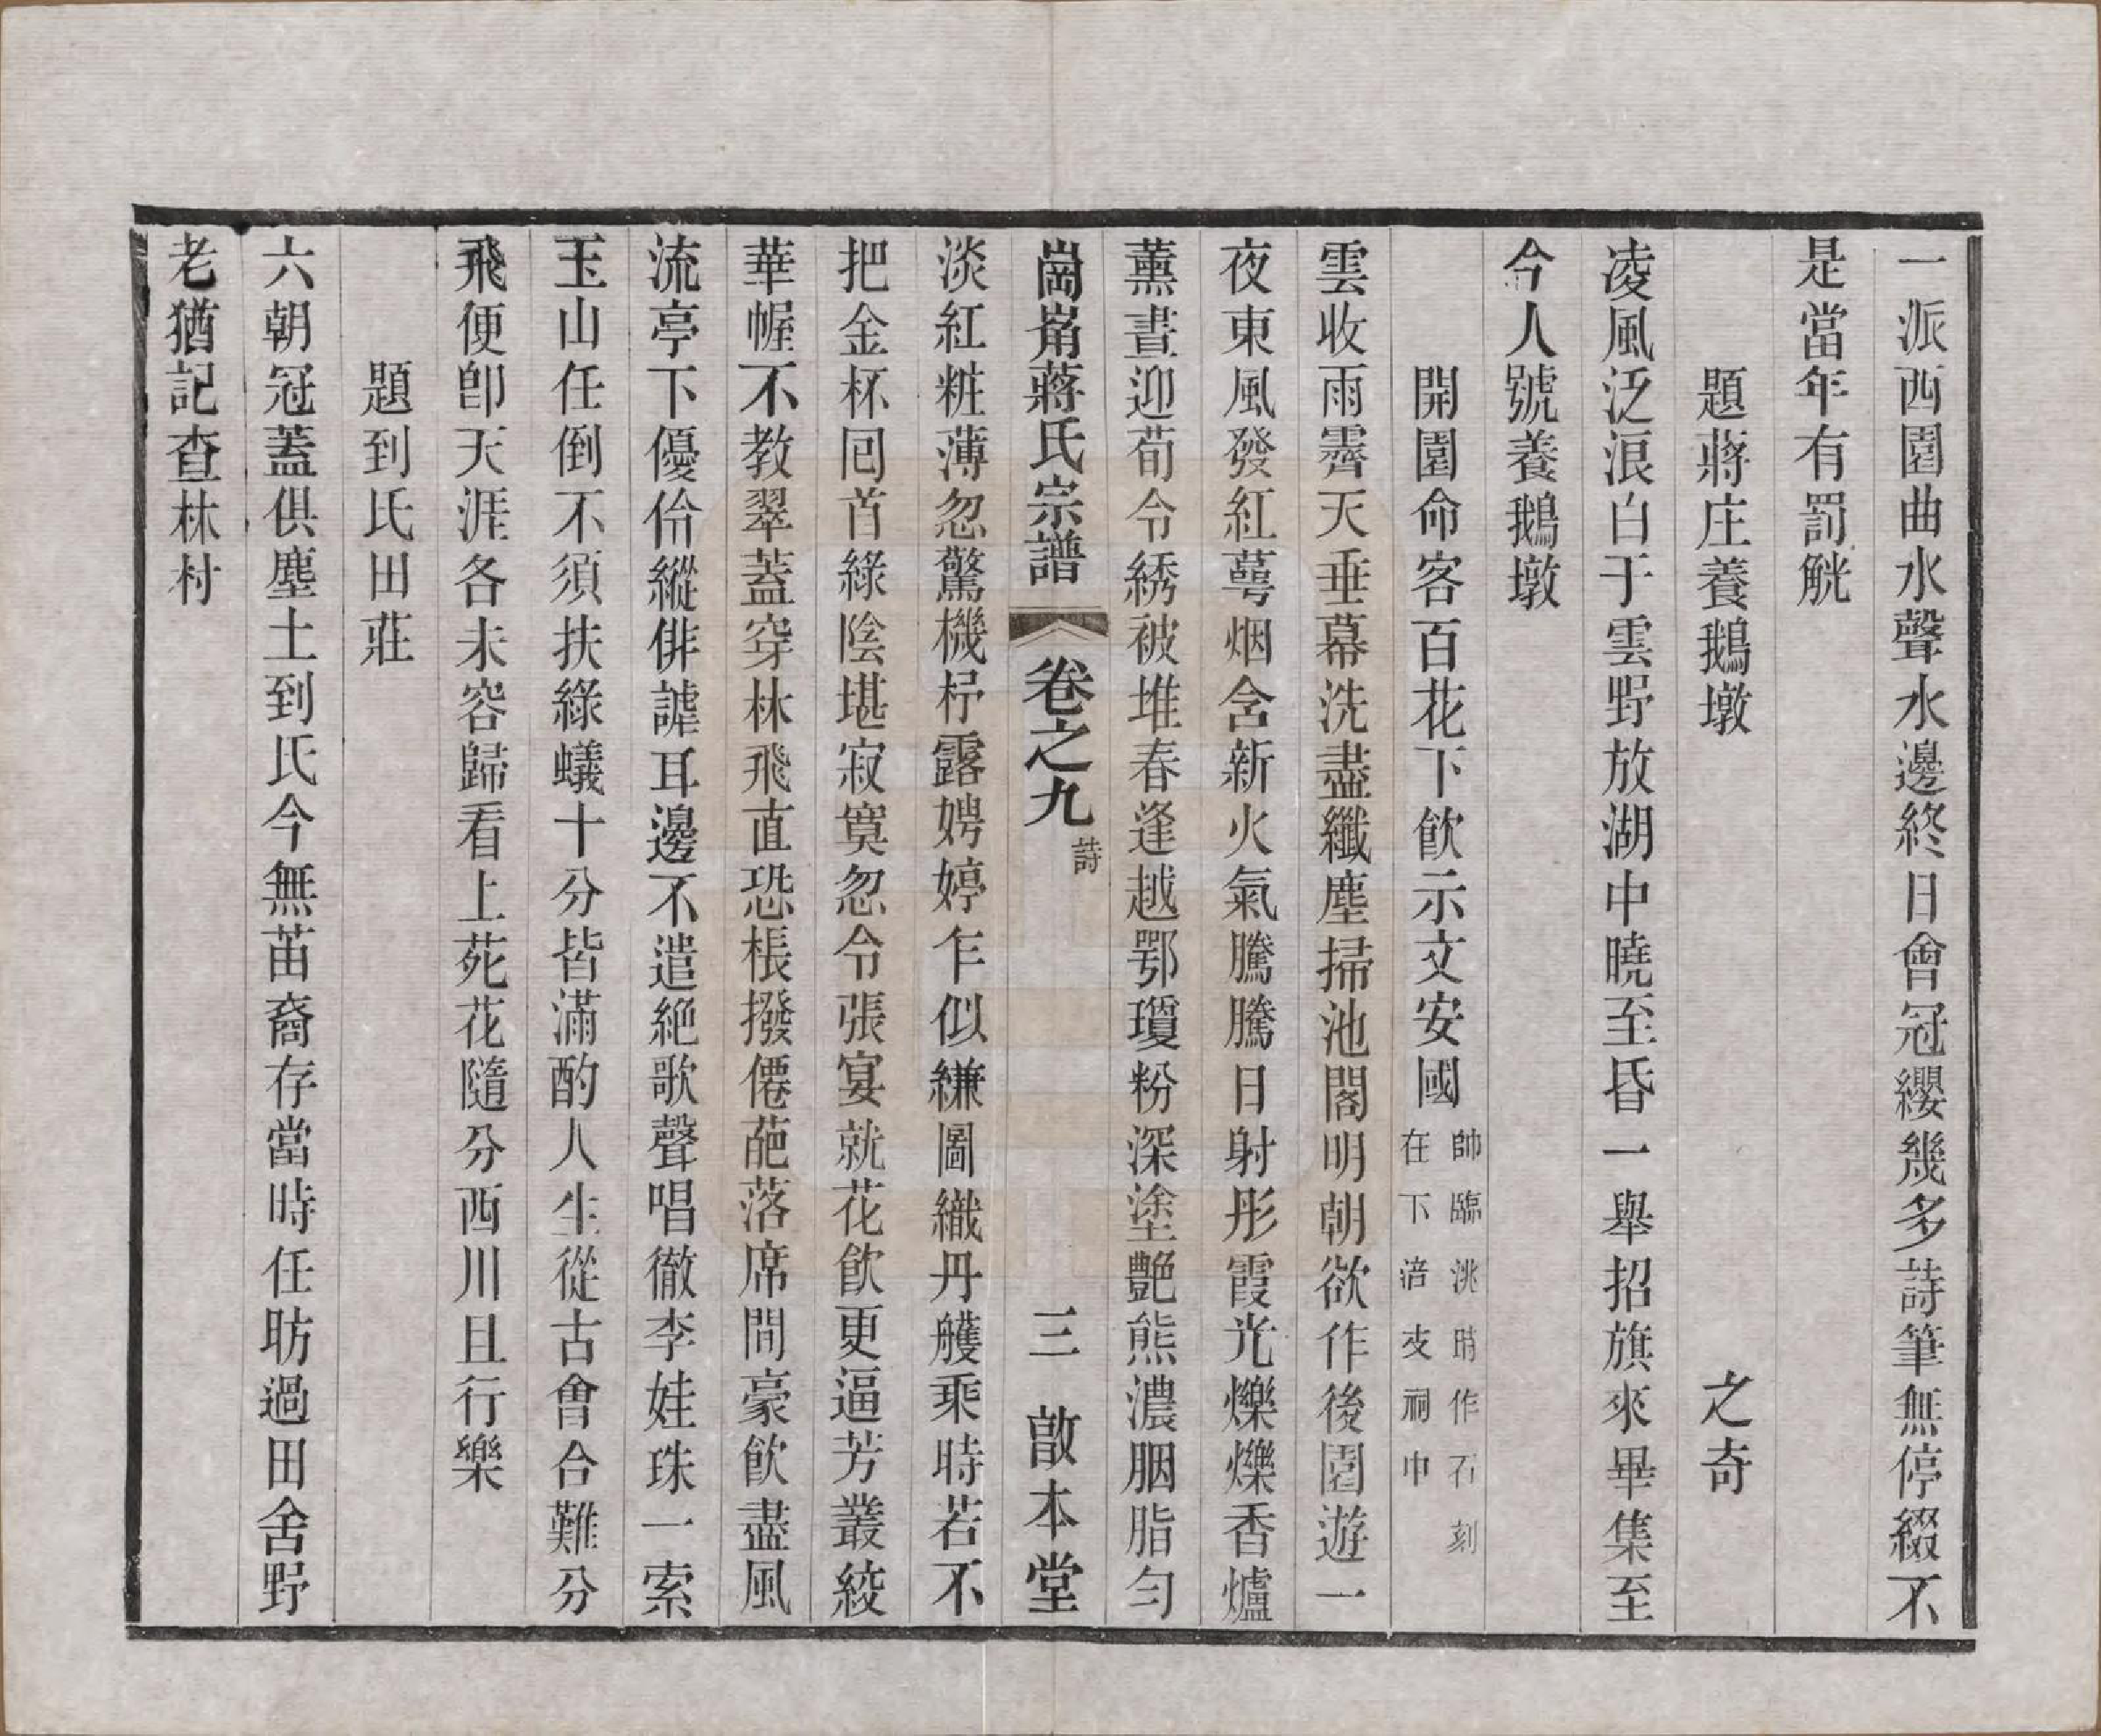 一派西園曲水聲水邊終日會冠纓幾多詩筆無停綴不
是當年有罰觥
題蔣庄養鵝墩　之奇
凌風泛浪白于雲野放湖中曉至昏一舉招旗來畢集至
今人號養鵝墩
開園命客百花下飲示文安國
帥臨洮時作石刻
在下涪支祠中
雲收雨霽天垂幕洗盡纖塵掃池閣明朝欲作後園遊一
夜東風發紅萼烟含新火氣騰騰日射彤霞光爍爍香爐
薰晝迎荀令綉被堆春逢越鄂瓊粉深塗艷態濃胭脂勻
崗崙蔣氏宗譜　卷之九　詩　三　啟本堂
淡紅粧薄忽驚機杼露娉婷乍似縑圖織丹艧乘時若不
把金杯囘首綠陰堪寂寞忽令張宴就花飲更逼芳叢綾
華幄不教翠蓋穿林飛直恐棖撥僊葩落席間豪飲盡風
流亭下優伶縱俳謔耳邊不遣絕歌聲唱徹李娃珠一索
玉山任倒不須扶綠蟻十分皆滿酌人生從古會合難分
飛便卽天涯各未容歸看上苑花隨分西川且行樂
題到氏田莊
六朝冠蓋俱塵土到氏今無苗裔存當時任昉過田舍野
老猶記查林村